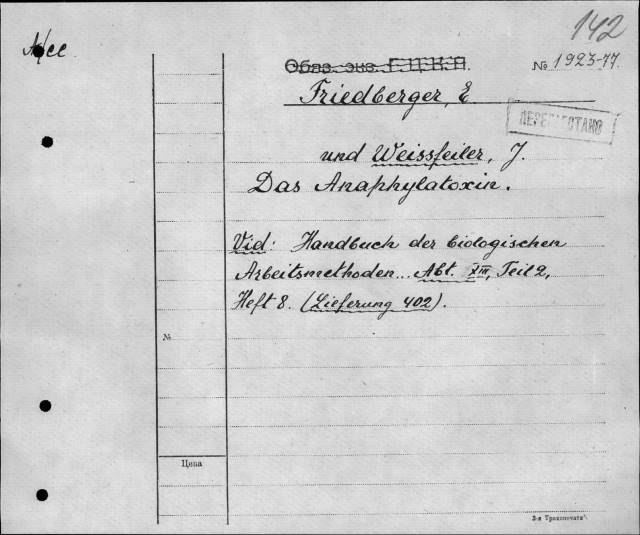 142
Обяз. экз. Г.Ц.К.П.
№ 1923-77
Friedberger, E
und Weissfeiler, J.
Das Anaphylatoxin.
Vid: Handbuch der biologischen
Arbeitsmethoden... Abt. XIII, Teil 2,
Heft 8. (Lieferung 402).
№
Цена
3-я Транспечати